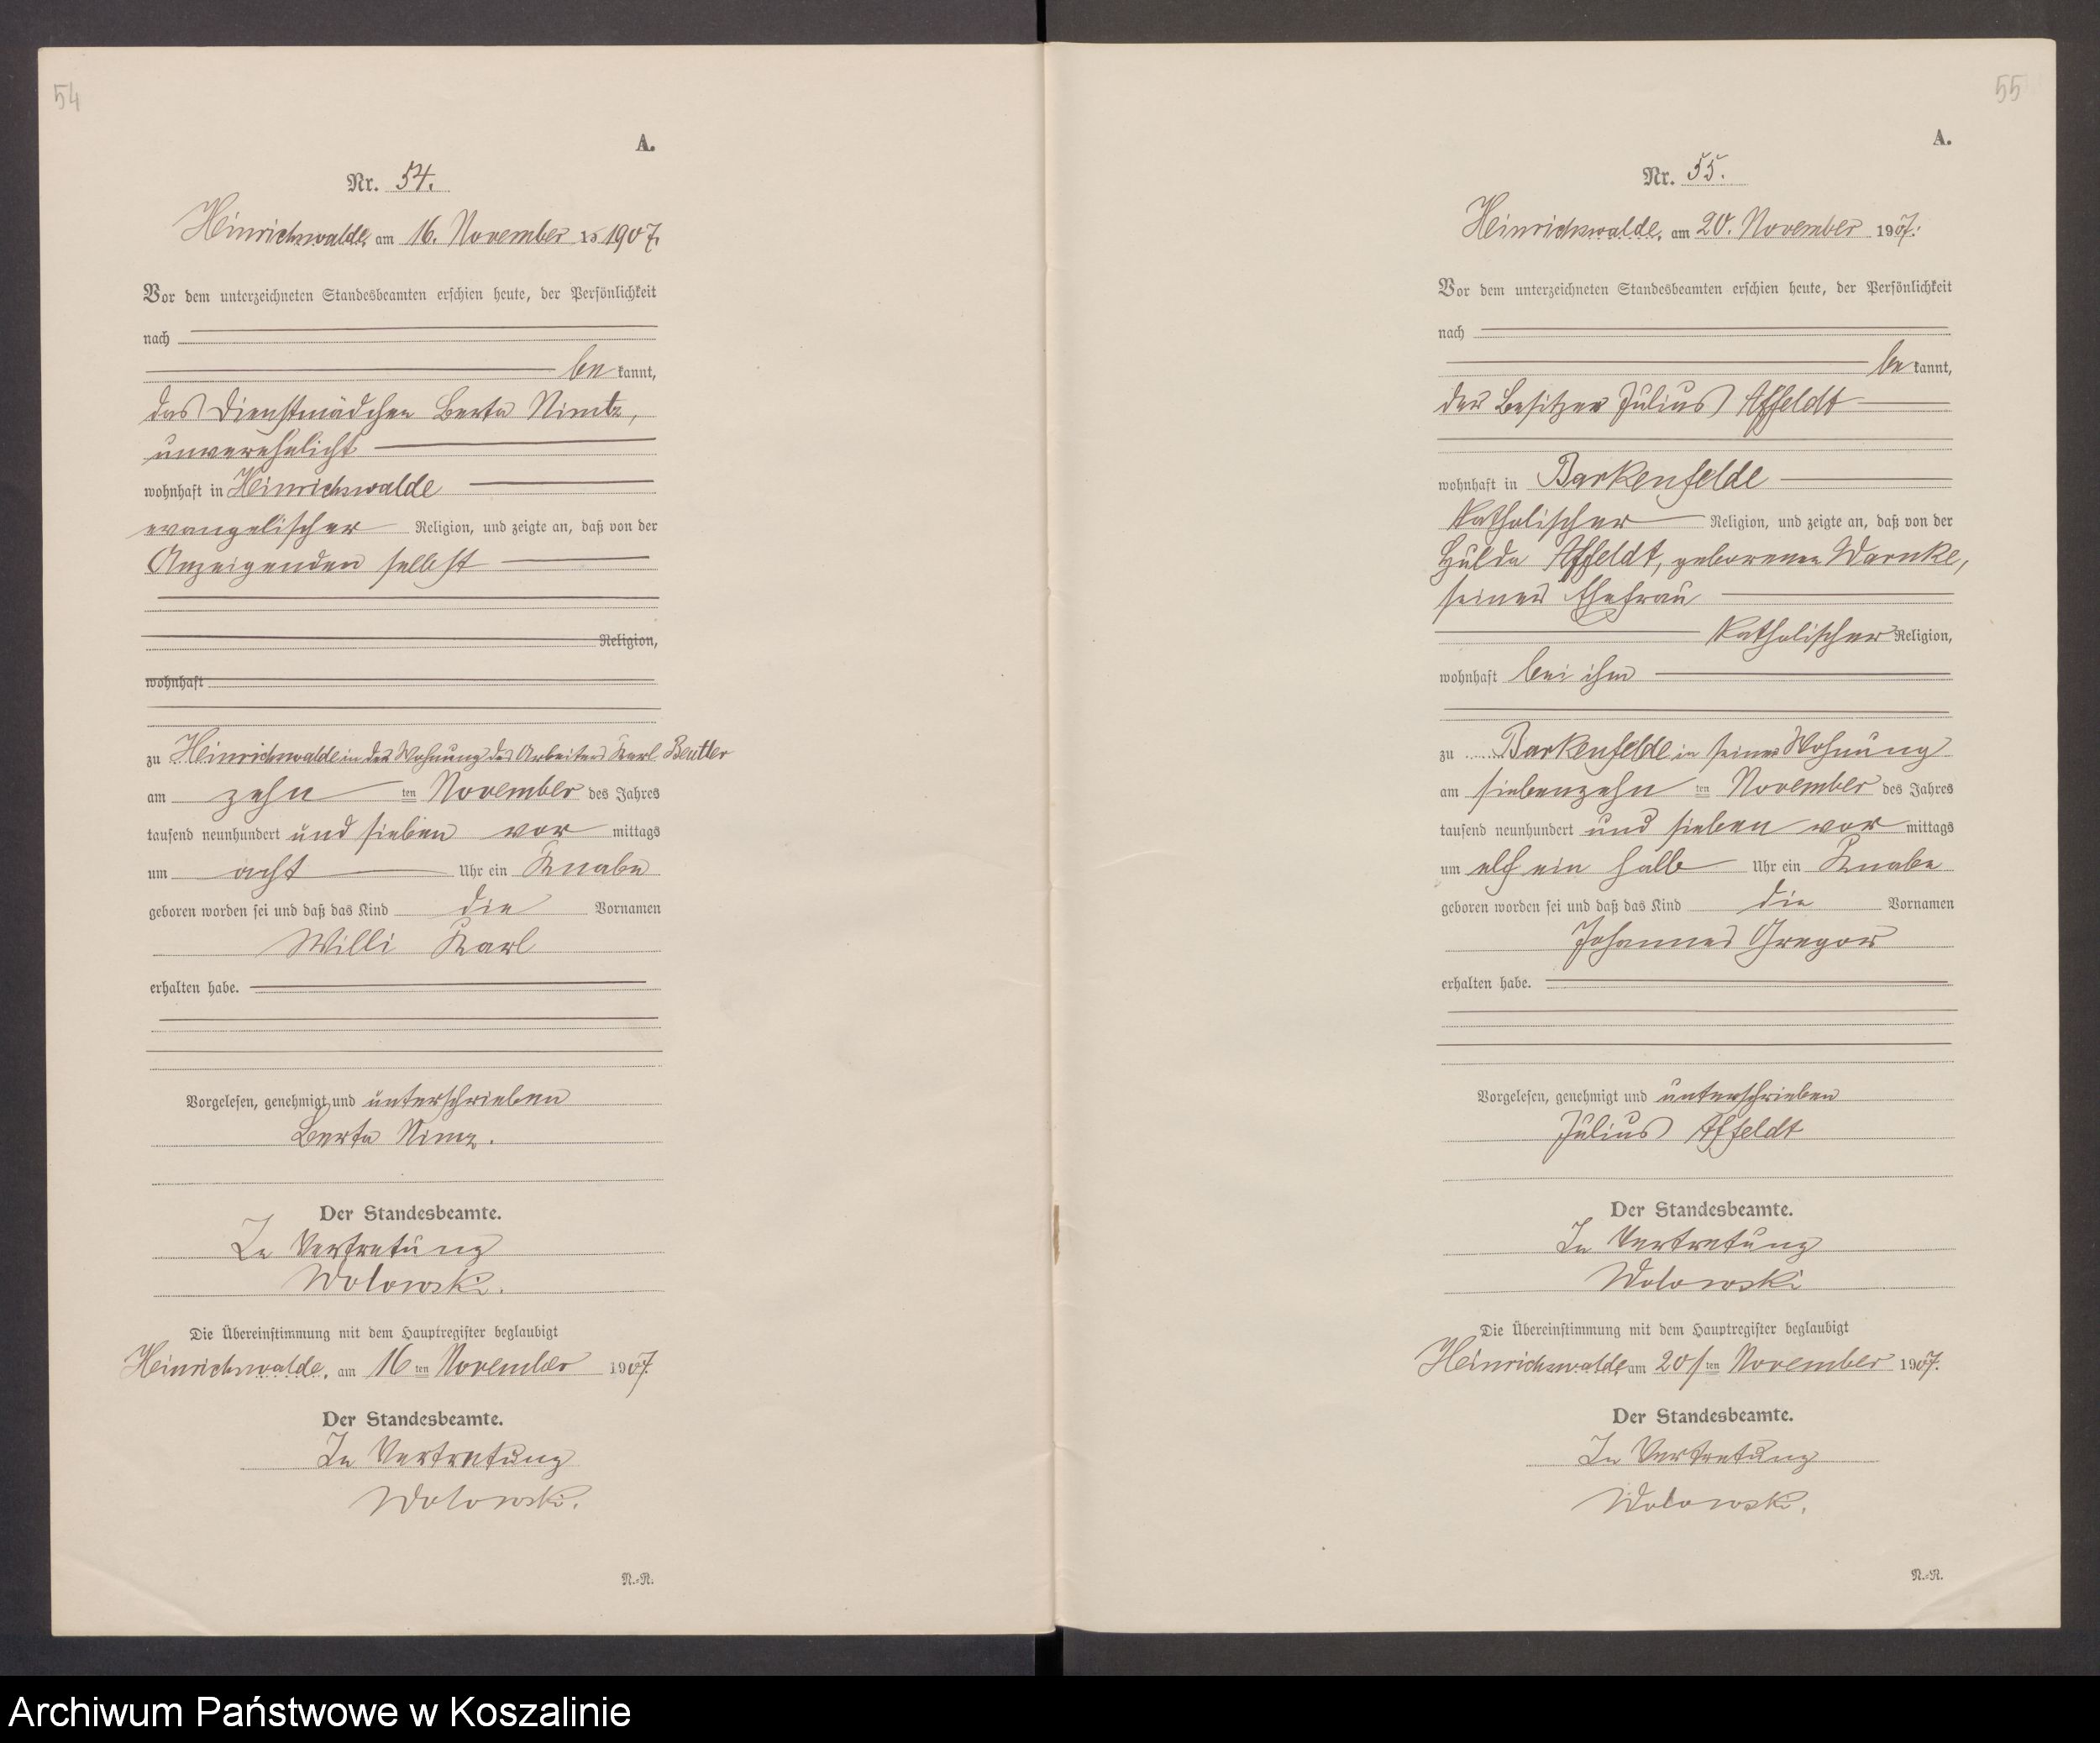 54
A.
Nr. 54.
Heinrichswalde, am 16. November 1907.
Vor dem unterzeichneten Standesbeamten erschien heute, der Persönlichkeit
nach
bekannt,
das Dienstmädchen Berta Nimtz,
unverehelicht
wohnhaft in Heinrichswalde
evangelischer Religion, und zeigte an, daß von der
Anzeigenden selbst
Religion,
wohnhaft
zu Heinrichswalde in der Wohnung des Arbeiters Karl Beutler
am zehn ten November des Jahres
tausend neunhundert und sieben vor mittags
um acht Uhr ein Knabe
geboren worden sei und daß das Kind die Vornamen
Willi Karl
erhalten habe.
Vorgelesen, genehmigt und unterschrieben
Berta Nimz.
Der Standesbeamte.
In Vertretung
Wolowski.
Die Übereinstimmung mit dem Hauptregister beglaubigt
Heinrichswalde, am 16 ten November 1907.
Der Standesbeamte.
In Vertretung
Wolowski.
N.-R.
55
A.
Nr. 55.
Heinrichswalde, am 20. November 1907.
Vor dem unterzeichneten Standesbeamten erschien heute, der Persönlichkeit
nach
bekannt,
der Besitzer Julius Affeldt
wohnhaft in Barkenfelde
katholischer Religion, und zeigte an, daß von der
Hulda Affeldt, geborenen Warnke,
seiner Ehefrau
katholischer Religion,
wohnhaft bei ihm
zu Barkenfelde in seiner Wohnung
am siebenzehn ten November des Jahres
tausend neunhundert und sieben vor mittags
um elf ein halb Uhr ein Knabe
geboren worden sei und daß das Kind die Vornamen
Johannes Gregor
erhalten habe.
Vorgelesen, genehmigt und unterschrieben
Julius Affeldt
Der Standesbeamte.
In Vertretung
Wolowski
Die Übereinstimmung mit dem Hauptregister beglaubigt
Heinrichswalde, am 20 ten November 1907.
Der Standesbeamte.
In Vertretung
Wolowski.
N.-R.
Archiwum Państwowe w Koszalinie